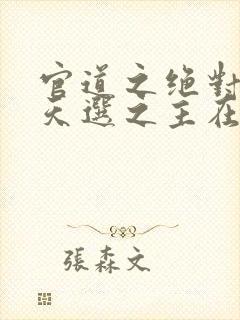 官道之绝對
天選之主在
張森文